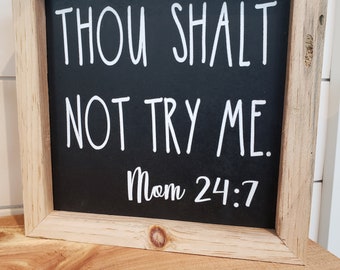 THOU SHALT
NOT TRY ME.
Mom 24:7